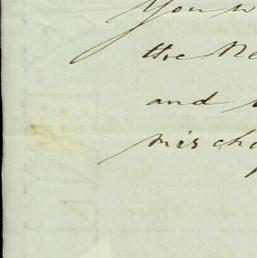 You w
the Ne
and
mischa